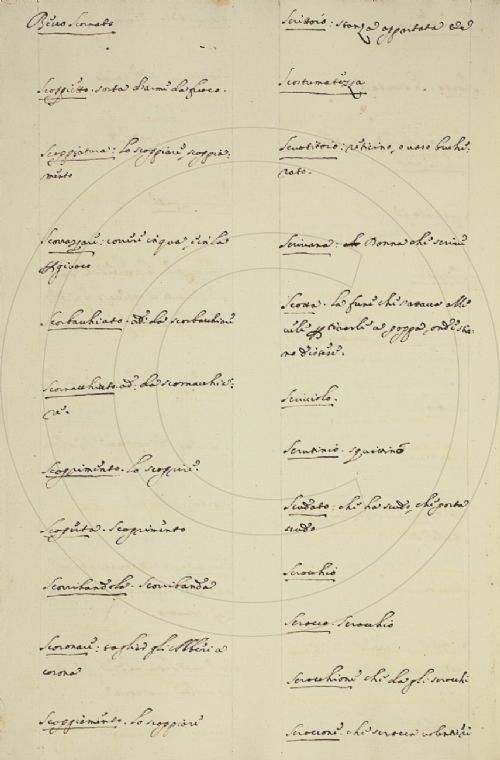 Becco Scornato
Scoppietto. sorta d'armi da fuoco.
Scoppiatura: lo scoppiare, scoppia:
mento
Scorazzare: correre in qua, e in la
giuoco
Scorbacchiato. ad: da scorbacchiare
Scornacchiato ad: da scornacchia:
re.
Scoprimento. lo scoprire.
Scoperta. Scoprimento
Scorribandola. Scorribanda
Scoronare: tagliar gli Alberi a
corona
Scoppiamento. lo scoppiare
Scrittoio: stanza appartata
Scostumatezza
Scuotitoio: reticino, o vaso buche:
rato.
Scrivana: Donna che scrive
Scotta. la fune che s'attacca alle
vele tirarle a poppa, onde stia:
no distese.
Scrutinio. squittino
Scudato: chi ha scudo, che porta
scudo
Scrocchio
Scrocco. Scrocchio
Scrocchione che da gli scrocchi
Scroccone. che scrocca volentieri